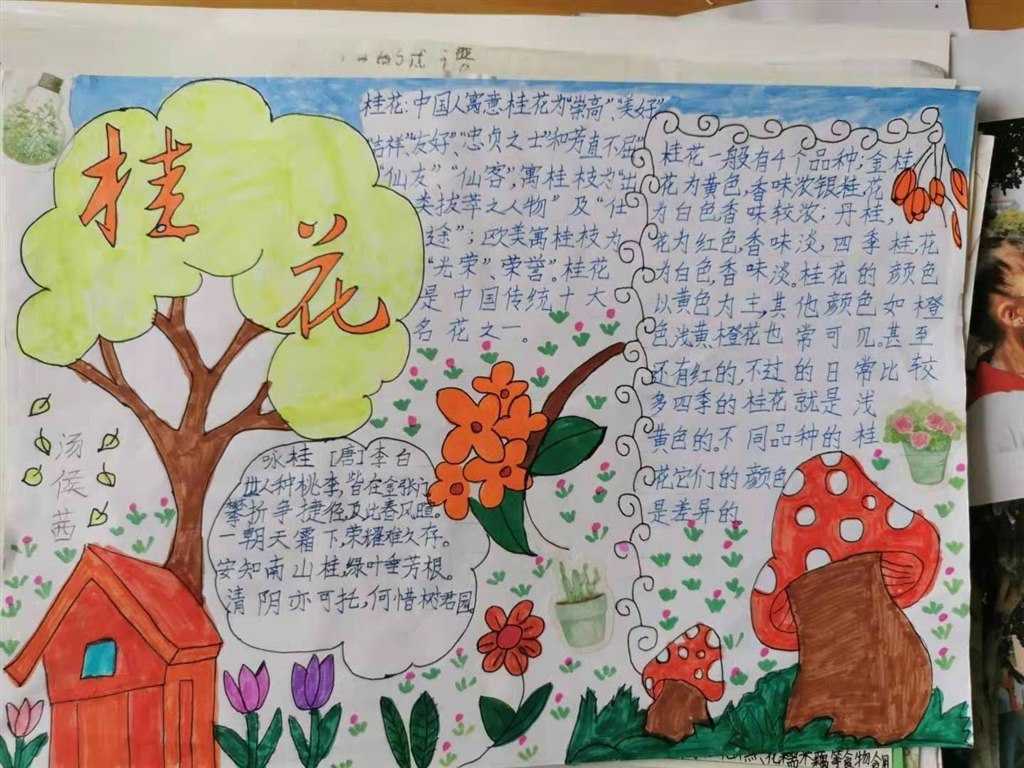 桂花
桂花:中国人寓意桂花为“崇高”、“美好”
吉祥”“友好”、“忠贞之士”和芳直不屈”
“仙友”、“仙客”,寓桂枝为“出
类拔萃之人物”及“仕
途”;欧美寓桂枝为
“光荣”、荣誉”。桂花
是中国传统十大
名花之一。
桂花一般有4个品种;金桂,
花为黄色,香味浓银桂,花
为白色香味较浓;丹桂,
花为红色,香味淡,四季桂,花
为白色,香味淡.桂花的颜色
以黄色为主,其他颜色如橙
色浅黄,橙花也常可见.甚至
还有红的,不过的日常比较
多四季的桂花就是浅
黄色的.不同品种的桂
花它们的颜色
是差异的
汤
侯
茜
咏桂[唐]李白
世人种桃李,皆在金张门
攀折争捷径,及此春风暄。
一朝天霜下,荣耀难久存。
安知南山桂,绿叶垂芳根。
清阴亦可托,何惜树君园